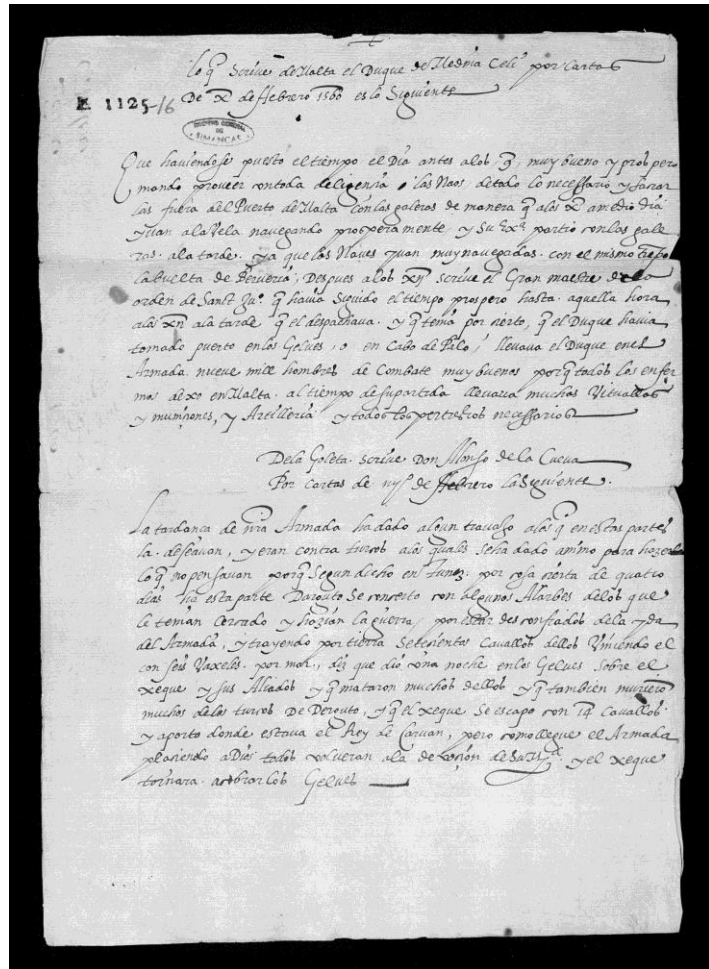 lo q̃ Scrive de Malta el Duque de Medina Celi por carta
E 1125-16
De x de Hebrero 1560 es lo Siguiente
ARCHIVO GENERAL DE SIMANCAS
Que haviendose puesto el tiempo el Dia antes a los muy bueno y prospero
mando proveer con toda deligençia las Naos de todo lo necessario y sacar
las fuera del Puerto de Malta con las galeras de manera q̃ a los x a medio dia
yvan a la Vela navegando prosperamente, y Su Ex.ª partio con las gale
ras a la tarde ya que las Naves yvan muy navegadas con el mismo tiẽpo
la buelta de Berveria, Despues a los xij scrive el Gran maestre de la
orden de Sanct Ju.º q̃ havia Seguido el tiempo prospero hasta aquella hora
a la tarde q̃ el despachava y q̃ tenia por çierto, q̃ el Duque havia
tomado puerto en los Gelves, o en Cabo de Palo, llevava el Duque en el
Armada nueve mill hombres de Combate muy buenos porq̃ todos los enfer
mos dexo en Malta al tiempo de su partida llevava muchas Vituallas
y muniçiones, y Artilleria y todos los pertrechos necessarios
De la Goleta Scrive Don Alonso de la Cueva
Por cartas de de Hebrero lo Siguiente
La tardança de nr̃a Armada ha dado algun travajo a los q̃ en estas partes
la deseavan, y eran contra turcos a los quales se ha dado animo para hazer
lo q̃ no pensavan porq̃ Segun dicho en Tunez por cosa çierta de quatro
dias ha esta parte Darguto Se conçerto con algunos Alarbes de los que
le tenian Çercado y hazian la guerra, por estar desconfiados de la yda
del Armada, y trayendo por tierra Seteçientos Cavallos dellos Viniendo el
con seis Vaxeles por mar, diz que dio una noche en los Gelves Sobre el
Xeque y sus Aliados y q̃ mataron muchos dellos y q̃ tambien murierõ
muchos de los turcos De Derguto, y q̃ el Xeque Se escapo con Cavallos
y aporto donde estava el Rey de Carvan, pero como llegue el Armada
plaziendo a Dios todos volveran a la devoçion de Su M.ᵈ y el Xeque
tornara a cobrar los Gelves